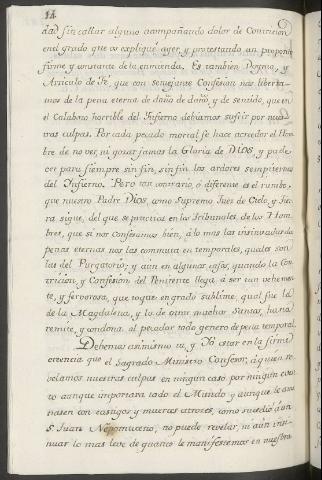 14
dad sin callar alguno acompañando dolor de Contricion
en el grado que os expliqué ayer, y protestando un proposito
firme y constante de la enmienda. Es tambien Dogma, y
Articulo de Fé, que con semejante Confesion nos liberta-
mos de la pena eterna de daño, y de sentido, que en
el Calabozo horrible del Infierno debiamos sufrir por nues-
tras culpas. Por cada pecado mortal se hace acreedor el Hom-
bre de no ver, ni gozar jamas la Gloria de DIOS, y pade-
cer para siempre sin fin, sin fin los ardores sempiternos
del Infierno. Pero tan contrario, ó diferente es el rumbo,
que nuestro Padre Dios, como Supremo Jues de Cielo, y Tier-
ra sigue, del que se practica en los Tribunales de los Hom-
bres, que si nos Confesamos bien, á lo mas las insinuadas
penas eternas nos las commuta en temporales, quales son
las del Purgatorio; y aun en algunas cosas, quando la Con-
tricion, y Confesion del Penitente llega á ser tan vehemen-
te, y fervorosa, que toque en grado sublime, qual fue la
de la Magdalena, y la de otros muchos Santos,
remite, y condona al pecador todo genero de pena temporal.
Debemos asimismo tu, y Yo estar en la firme
creencia que el Sagrado Ministro Confesor, á quien re-
velamos nuestras culpas en ningun caso por ningun even-
to aunque importara todo el Mundo y aunque le ame-
nasen con castigos y muertes atroces, como sucedió á un
S. Juan Nepomuceno, no puede revelar, ni aun insi-
nuar lo mas leve de quanto le manifestemos en nuestra